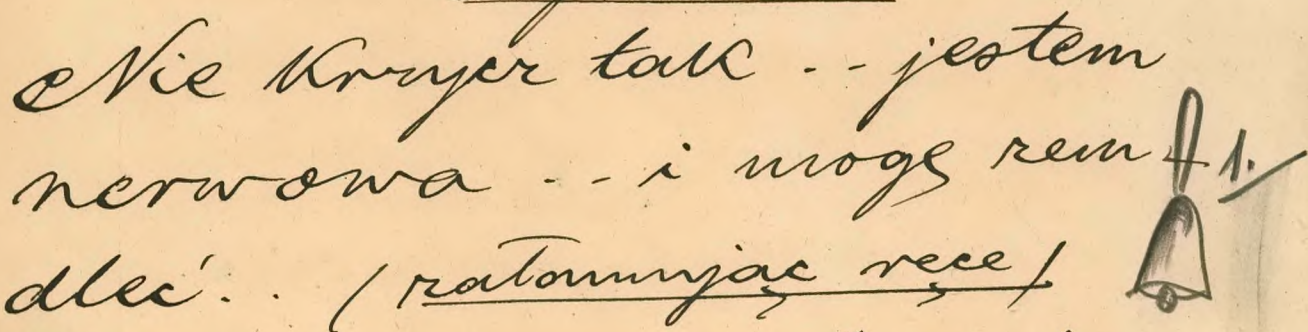 Nie krzycz tak .. jestem
nerwowa .. i mogę zem- 1.
dleć.. (załamując ręce)